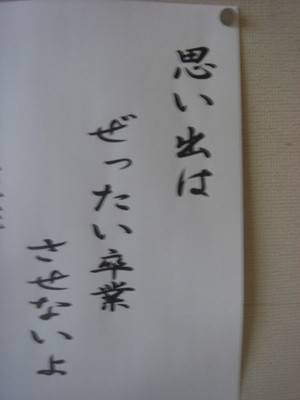 思い出は
ぜったい卒業
させないよ